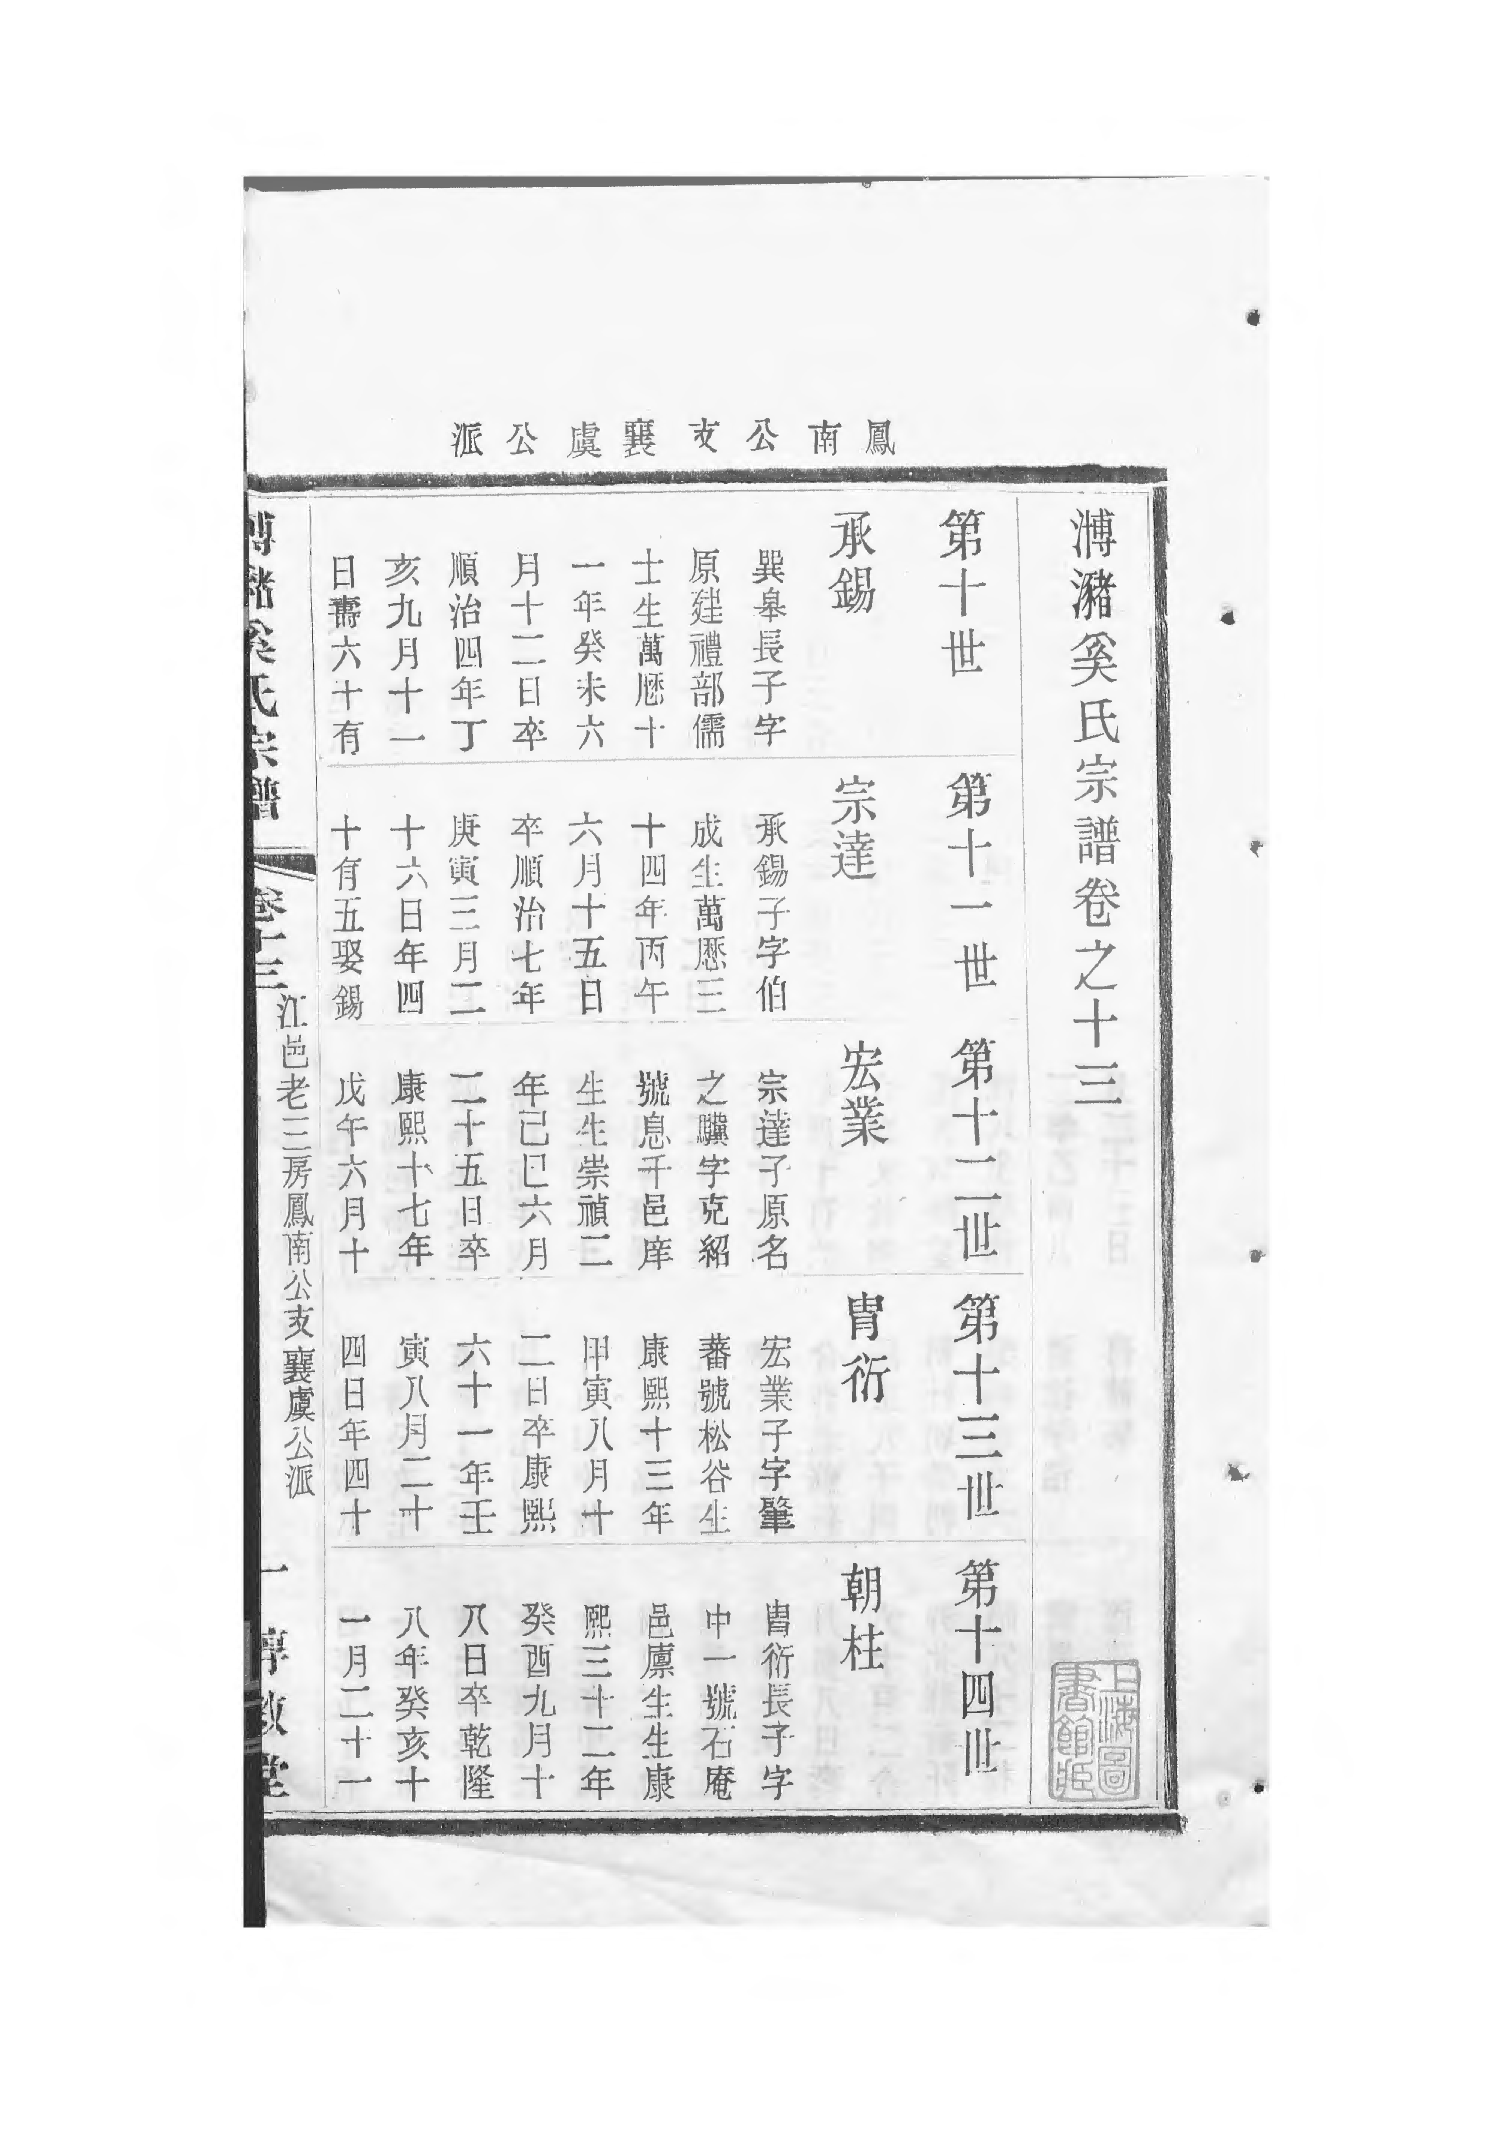 鳳南公支襄虞公派
溥瀦奚氏宗譜卷之十三
第十世
承錫
巽皋長子字
原建禮部儒
士生萬厯十
一年癸未六
月十二日卒
順治四年丁
亥九月十一
日壽六十有
第十一世
宗達
承錫子字伯
成生萬厯三
十四年丙午
六月十五日
卒順治七年
庚寅三月二
十六日年四
十有五娶錫
第十二世
宏業
宗達子原名
之驥字克紹
號息千邑庠
生生崇禎二
年己巳六月
二十五日卒
康熙十七年
戊午六月十
第十三世
胄衍
宏業子字肇
蕃號松谷生
康熙十三年
甲寅八月十
二日卒康熙
六十一年壬
寅八月二十
四日年四十
第十四世
朝柱
胄衍長子字
中一號石庵
邑廩生生康
熙三十二年
癸酉九月十
八日卒乾隆
八年癸亥十
一月二十一
上海圖
書館藏
溥瀦奚氏宗譜
卷十三
江邑老三房鳳南公支襄虞公派
一
敦堂